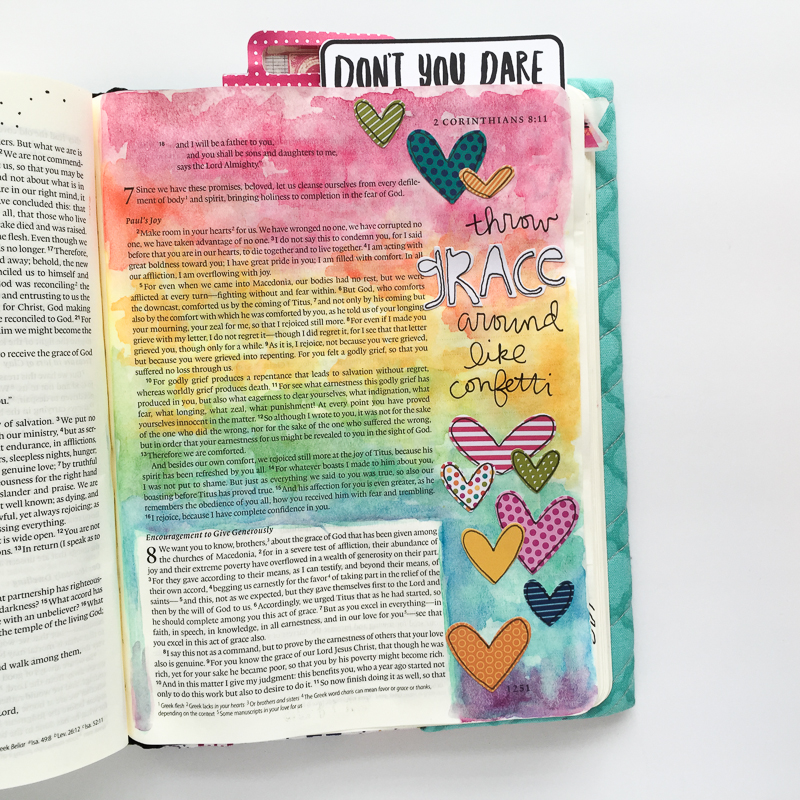 DON'T YOU DARE
2 CORINTHIANS 8:11
18 and I will be a father to you,
and you shall be sons and daughters to me,
says the Lord Almighty."
7 Since we have these promises, beloved, let us cleanse ourselves from every defile-
ment of body¹ and spirit, bringing holiness to completion in the fear of God.
Paul's Joy
²Make room in your hearts² for us. We have wronged no one, we have corrupted no
one, we have taken advantage of no one. ³I do not say this to condemn you, for I said
before that you are in our hearts, to die together and to live together. ⁴I am acting with
great boldness toward you; I have great pride in you; I am filled with comfort. In all
our affliction, I am overflowing with joy.
⁵For even when we came into Macedonia, our bodies had no rest, but we were
afflicted at every turn—fighting without and fear within. ⁶But God, who comforts
the downcast, comforted us by the coming of Titus, ⁷and not only by his coming but
also by the comfort with which he was comforted by you, as he told us of your longing,
your mourning, your zeal for me, so that I rejoiced still more. ⁸For even if I made you
grieve with my letter, I do not regret it—though I did regret it, for I see that that letter
grieved you, though only for a while. ⁹As it is, I rejoice, not because you were grieved,
but because you were grieved into repenting. For you felt a godly grief, so that you
suffered no loss through us.
¹⁰For godly grief produces a repentance that leads to salvation without regret,
whereas worldly grief produces death. ¹¹For see what earnestness this godly grief has
produced in you, but also what eagerness to clear yourselves, what indignation, what
fear, what longing, what zeal, what punishment! At every point you have proved
yourselves innocent in the matter. ¹²So although I wrote to you, it was not for the sake
of the one who did the wrong, nor for the sake of the one who suffered the wrong,
but in order that your earnestness for us might be revealed to you in the sight of God.
¹³Therefore we are comforted.
And besides our own comfort, we rejoiced still more at the joy of Titus, because his
spirit has been refreshed by you all. ¹⁴For whatever boasts I made to him about you,
I was not put to shame. But just as everything we said to you was true, so also our
boasting before Titus has proved true. ¹⁵And his affection for you is even greater, as he
remembers the obedience of you all, how you received him with fear and trembling.
¹⁶I rejoice, because I have complete confidence in you.
Encouragement to Give Generously
8 We want you to know, brothers,³ about the grace of God that has been given among
the churches of Macedonia, ²for in a severe test of affliction, their abundance of
joy and their extreme poverty have overflowed in a wealth of generosity on their part.
³For they gave according to their means, as I can testify, and beyond their means, of
their own accord, ⁴begging us earnestly for the favor⁴ of taking part in the relief of the
saints—⁵and this, not as we expected, but they gave themselves first to the Lord and
then by the will of God to us. ⁶Accordingly, we urged Titus that as he had started, so
he should complete among you this act of grace. ⁷But as you excel in everything—in
faith, in speech, in knowledge, in all earnestness, and in our love for you⁵—see that
you excel in this act of grace also.
⁸I say this not as a command, but to prove by the earnestness of others that your love
also is genuine. ⁹For you know the grace of our Lord Jesus Christ, that though he was
rich, yet for your sake he became poor, so that you by his poverty might become rich.
¹⁰And in this matter I give my judgment: this benefits you, who a year ago started not
only to do this work but also to desire to do it. ¹¹So now finish doing it as well, so that
¹ Greek flesh ² Greek lacks in your hearts ³ Or brothers and sisters ⁴ The Greek word charis can mean favor or grace or thanks,
depending on the context ⁵ Some manuscripts in your love for us
throw
GRACE
around
like
confetti
1251